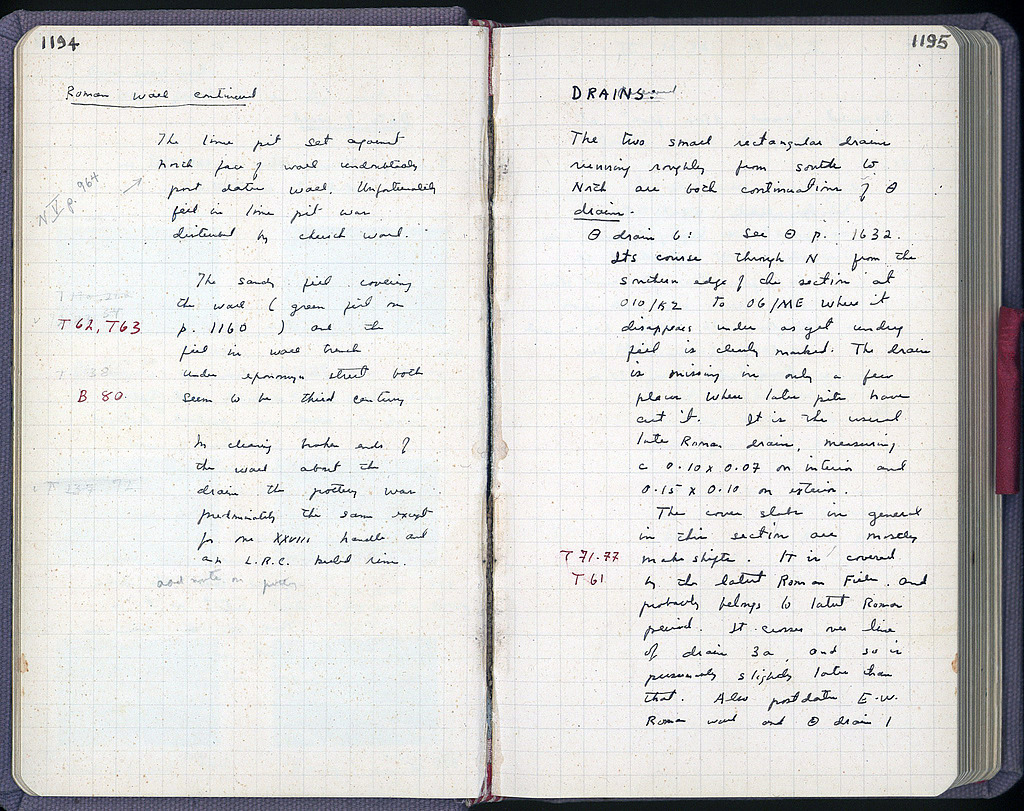 1194
Roman wall continued
The lime pit set against
north face of wall undoubtedly
N V p. 964
post dates wall. Unfortunately
fill in lime pit was
disturbed by church wall.
The sandy fill covering
the wall (green fill on
T 62, T63
p. 1160 ) and the
fill in wall trench
T 38
under street both
B 80.
seem to be third century
In clearing broken ends of
the wall about the
drain the pottery was
predominately the same except
for one XXVIII handle and
an L.R.C. rim.
add note on pottery
1195
DRAINS:
The two small rectangular drains
running roughly from south to
North are both continuations of Θ
drain.
Θ drain 6: See Θ p. 1632.
Its course through N from the
southern edge of the section at
010/KZ to 06/ME where it
disappears under as yet undug
fill is clearly marked. The drain
is missing in only a few
places where later pits have
cut it. It is the usual
late Roman drain, measuring
c 0.10 x 0.07 on interior and
0.15 x 0.10 on exterior.
The cover slabs in general
in this section are mostly
T 71-77
makeshifts. It is covered
T 61
by the latest Roman Fill. and
probably belongs to latest Roman
period. It crosses over line
of drain 3a, and so is
presumably slightly later than
that. Also postdates E-W.
Roman wall and Θ drain 1